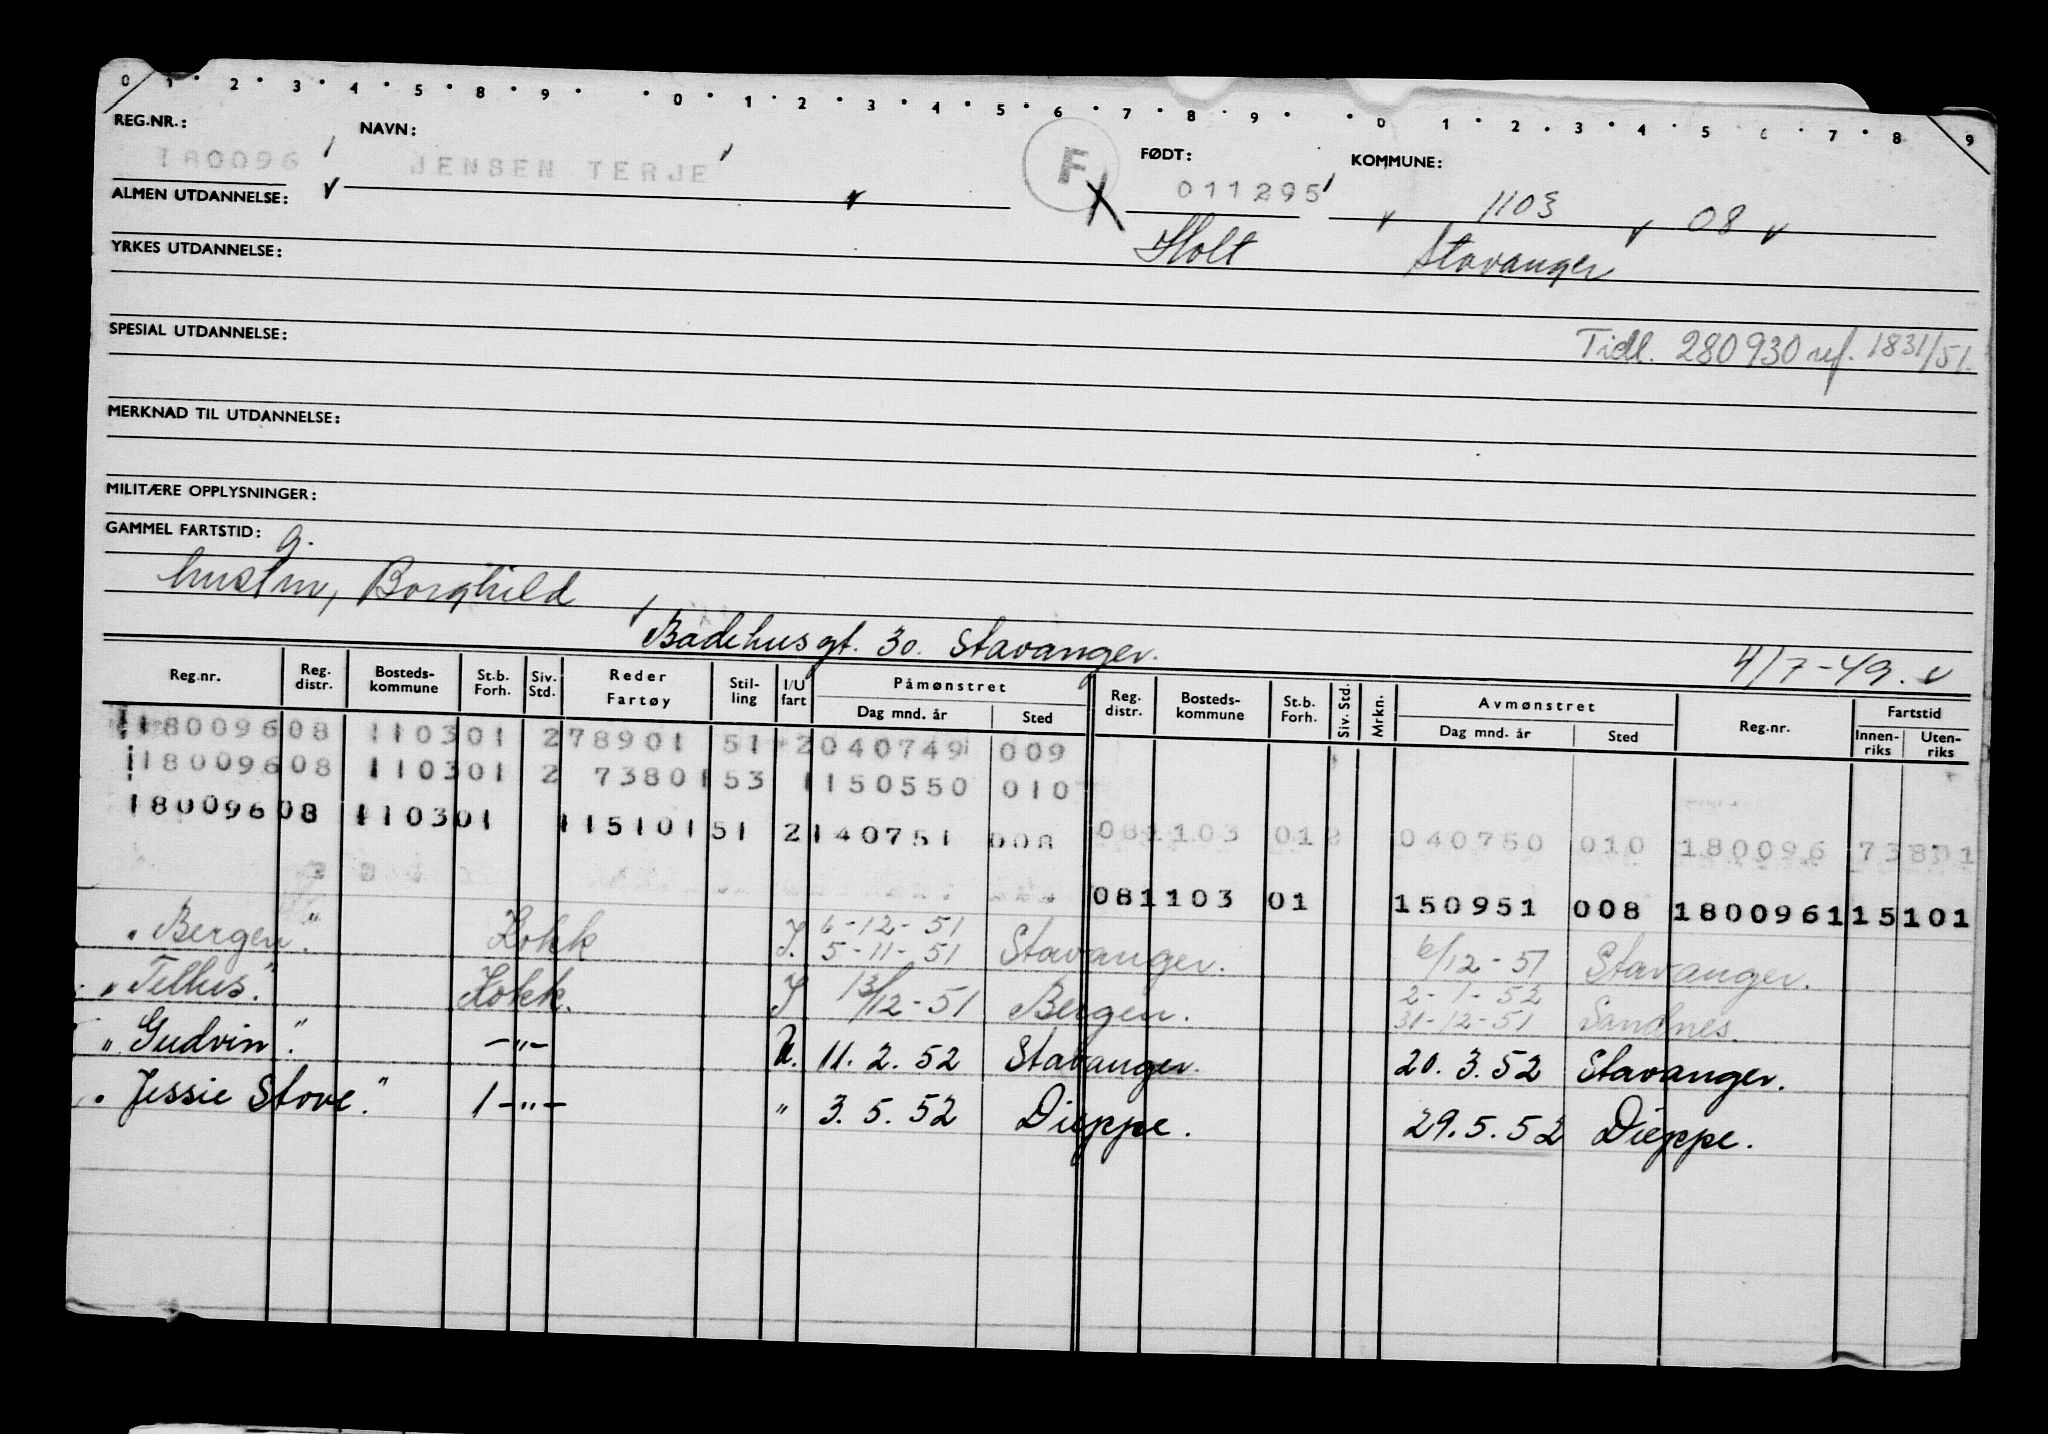 0 1 2 3 4 5 8 9 0 1 2 3 4 5 6 7 8 9 0 1 2 3 4 5 6 7 8 9
REG.NR.: NAVN: FØDT: KOMMUNE:
180096 JENSEN TERJE F 011295 1103 08
ALMEN UTDANNELSE: Holt Stavanger
YRKES UTDANNELSE:
SPESIAL UTDANNELSE: Tidl. 280930 ref. 1831/51.
MERKNAD TIL UTDANNELSE:
MILITÆRE OPPLYSNINGER:
GAMMEL FARTSTID: g.
hustru, Borghild
Badehusgt. 30. Stavanger. 4/7-49.
Reg.nr. Reg. distr. Bosteds- kommune St.b. Forh. Siv. Std. Reder Fartøy Stil- ling I/U fart Påmønstret Dag mnd. år Sted Reg. distr. Bosteds- kommune St.b. Forh. Siv. Std. Mrkn. Avmønstret Dag mnd. år Sted Reg.nr. Fartstid Innen- riks Uten- riks
180096 08 1103 01 2 78901 51 2 040749 009
180096 08 1103 01 2 73801 53 1 150550 010
180096 08 1103 01 115101 51 2 140751 008 08 1103 01 2 040750 010 180096 73801
08 1103 01 150951 008 180096 115101
"Bergen". Kokk I. 6-12-51 5-11-51 Stavanger. 6/12-51 Stavanger.
"Tellus". Kokk. I 13/12-51 Bergen. 2-1-52 31-12-51 Sandnes.
"Gudvin". -"- U. 11.2.52 Stavanger. 20.3.52 Stavanger.
"Jessie Stove". 1-"- " 3.5.52 Dieppe. 29.5.52 Dieppe.